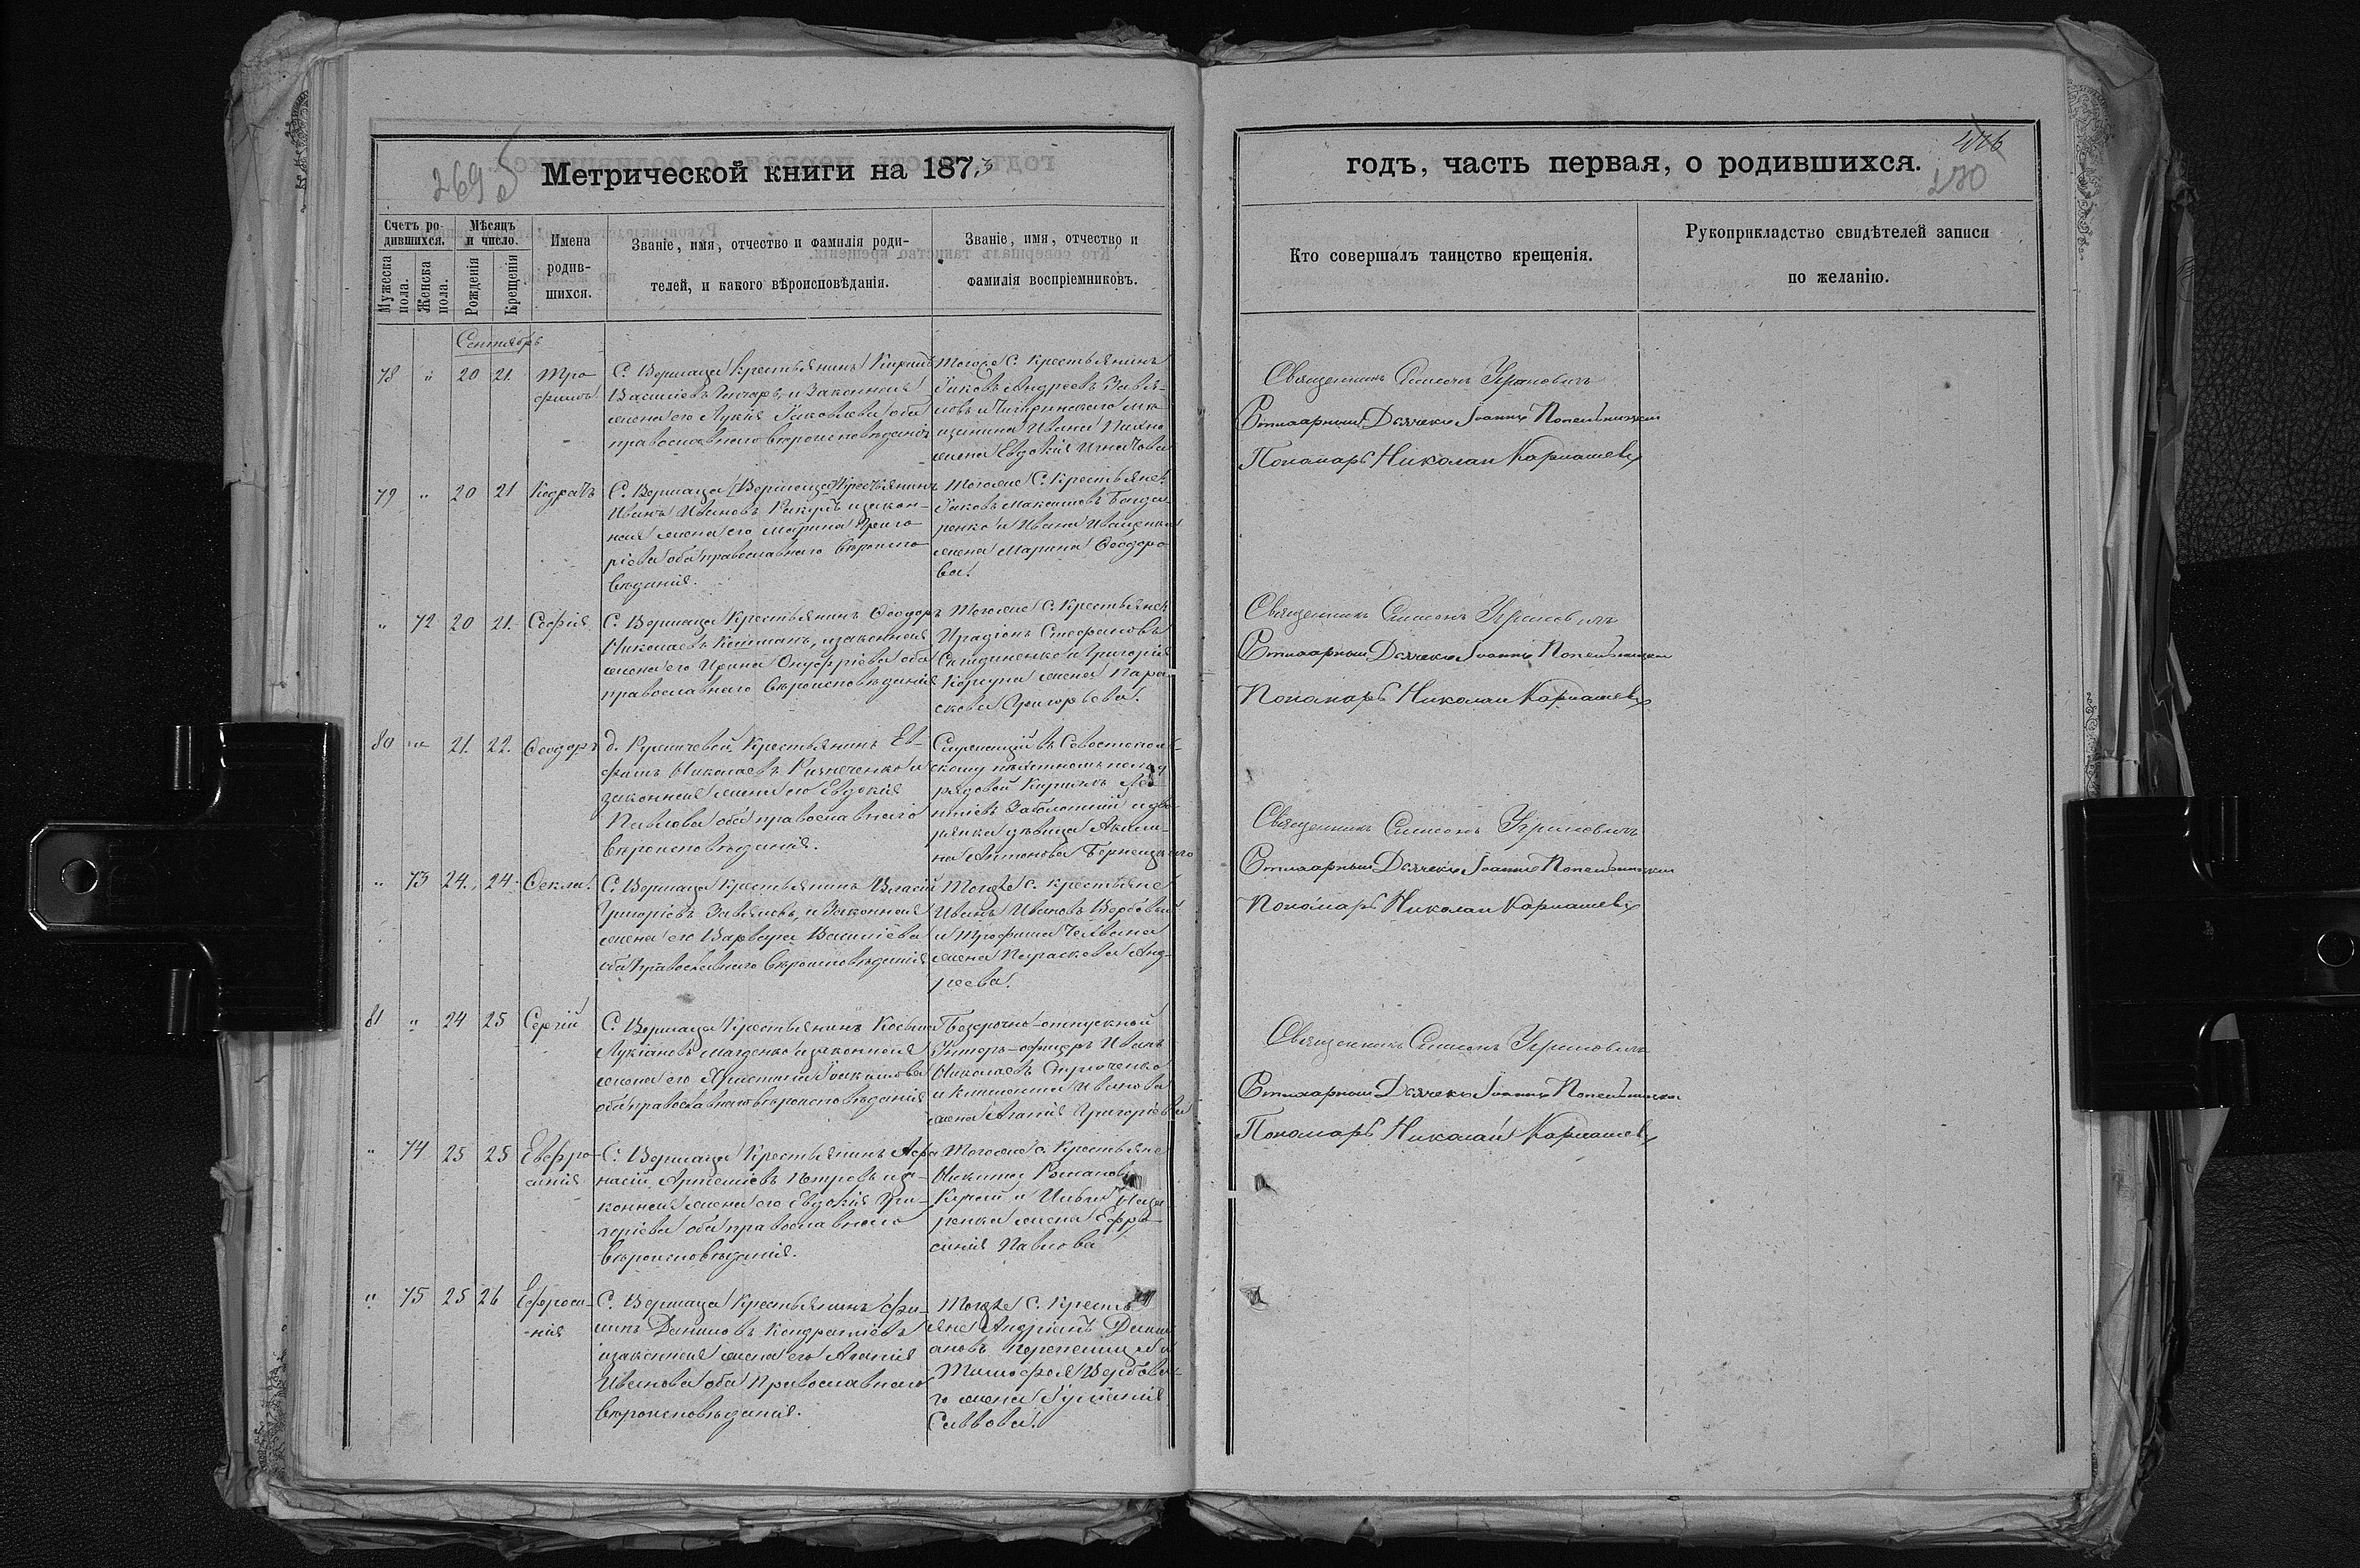 269 б
Метрической книги на 1873
Счетъ ро-
дившихся.
Мѣсяцъ
и число.
Мужеска
пола.
Женска
пола.
Рожденія
Крещенія
Имена
родив-
шихся.
Званіе, имя, отчество и фамилія роди-
телей, и какого вѣроисповѣданія.
Званіе, имя, отчество и
фамилія воспріемниковъ.
Сентябрь
78 " 20 21.
Тро
фимъ
С. Вершаца Крестьянинъ
Васильевъ Гончаръ, и законная
жена его Лукія Іаковлева оба
православнаго вѣроисповѣданія
Тогоже С. Крестьянинъ
Іаковъ Андреевъ
и Чигиринскаго мѣ-
щанина Ивана
жена Евдокія Игнатова
79 " 20 21
Кодратъ
С. Вершаца Крестьянинъ
Иванъ Ивановъ и закон-
ная жена его Марина Григо
ріева оба православнаго вѣроиспо
вѣданія.
Тогоже С. Крестьяне
Іаковъ Максимовъ Бонда
ренко и Ивана Иващенка
жена Марина Ѳеодоро
ва.
" 72 20 21.
Софія
С. Вершаца Крестьянинъ Ѳеодоръ
Николаевъ и законная
жена его Ирина Онуфріева оба
православнаго вѣроисповѣданія
Тогоже С. Крестьяне
Иродіонъ Стефановъ
и Григорія
Корсуна жена Пара
скева Григорьева.
80 " 21. 22.
Ѳеодоръ
д. Крестьянинъ Ев-
фимъ Николаевъ и
законная жена его Евдокія
Павлова оба православнаго
вѣроисповѣданія.
Служащій въ Севастополь-
скому пѣхотномъ полку
рядовой
Заболотній и дво-
рянка дѣвица Акили-
на Антонова
" 73 24. 24.
Ѳекла.
С. Вершаца Крестьянинъ Власій
Григоріевъ и законная
жена его Варвара Василіева
оба православнаго вѣроисповѣданія
Тогоже с. крестьяне
Иванъ Ивановъ Вербовый
и Трофима
жена Параскева Анд-
реева.
81 " 24 25
Сергій
С. Вершаца Крестьянинъ Косьма
Лукіановъ и законная
жена его Христина Іоакимова
оба православнаго вѣроисповѣданія
Безсрочно-отпускной
Унтеръ-офицеръ Иванъ
Николаевъ
и Климентія Иванова
жена Агапія Григоріева
" 74 25 25
Евфро-
синія
С. Вершаца Крестьянинъ Афа
насій Артеміевъ Петровъ и за-
конная жена его Евдокія Гри-
горіева оба православнаго
вѣроисповѣданія.
Тогоже с. Крестьяне
Никита Романовъ
и Ильи Наза
ренка жена Ефро-
синія Павлова
" 75 25 26
Ефроси-
-нія
С. Вершаца Крестьянинъ Фи-
липъ Даниловъ Кондратіевъ
и законная жена его Агапія
Иванова оба Православнаго
вѣроисповѣданія.
Тогоже С. Кресть
яне Андріанъ Дами
ановъ Перепелица и
Тимофея Вербова-
го жена Іуліанія
Саввова.
годъ, часть первая, о родившихся.
270
Кто совершалъ таинство крещенія.
Рукоприкладство свидѣтелей записи
по желанію.
Священникъ Симеонъ Угриновичъ
Стихарный Дьячекъ Іоаннъ Попельницкій
Пономарь Николай Карпашевъ
Священникъ Симеонъ Угриновичъ
Стихарный Дьячекъ Іоаннъ Попельницкій
Пономарь Николай Карпашевъ
Священникъ Симеонъ Угриновичъ
Стихарный Дьячекъ Іоаннъ Попельницкій
Пономарь Николай Карпашевъ
Священникъ Симеонъ Угриновичъ
Стихарный Дьячекъ Іоаннъ Попельницкій
Пономарь Николай Карпашевъ